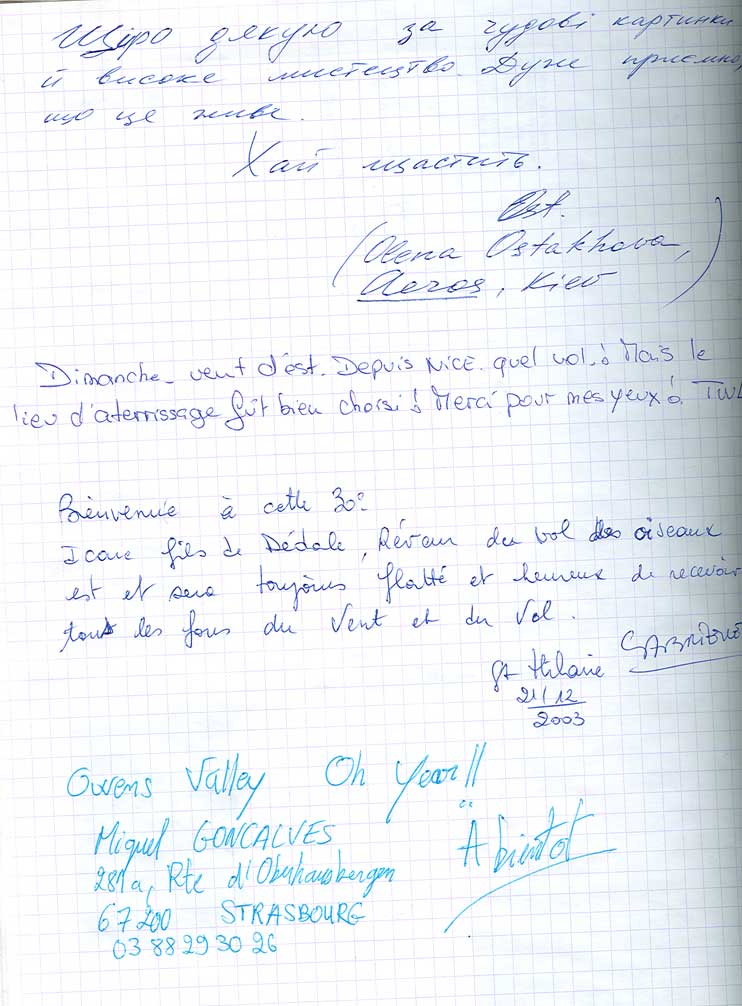 Щіро дякую за чудові картинки
й високе мистецтво. Дуже приємно,
що це живе.
Хай щастить.
Ost.
(Olena Ostakhova,
Aeros, Kiev)
Dimanche - vent d'est. Depuis NICE. quel vol.! Mais le
lieu d'aterrissage fût bien choisi! Merci pour mes yeux!
Bienvenue à cette 30e
Icare fils de Dédale, Rêveur du vol des oiseaux
est et sera toujours flatté et heureux de recevoir
tous les fous du Vent et du Vol.
St Hilaire
21/12
2003
Owens Valley Oh Year!!
Miguel GONCALVES
A bientot
281a, Rte d'Oberhausbergen
67200 STRASBOURG
03 88 29 30 26